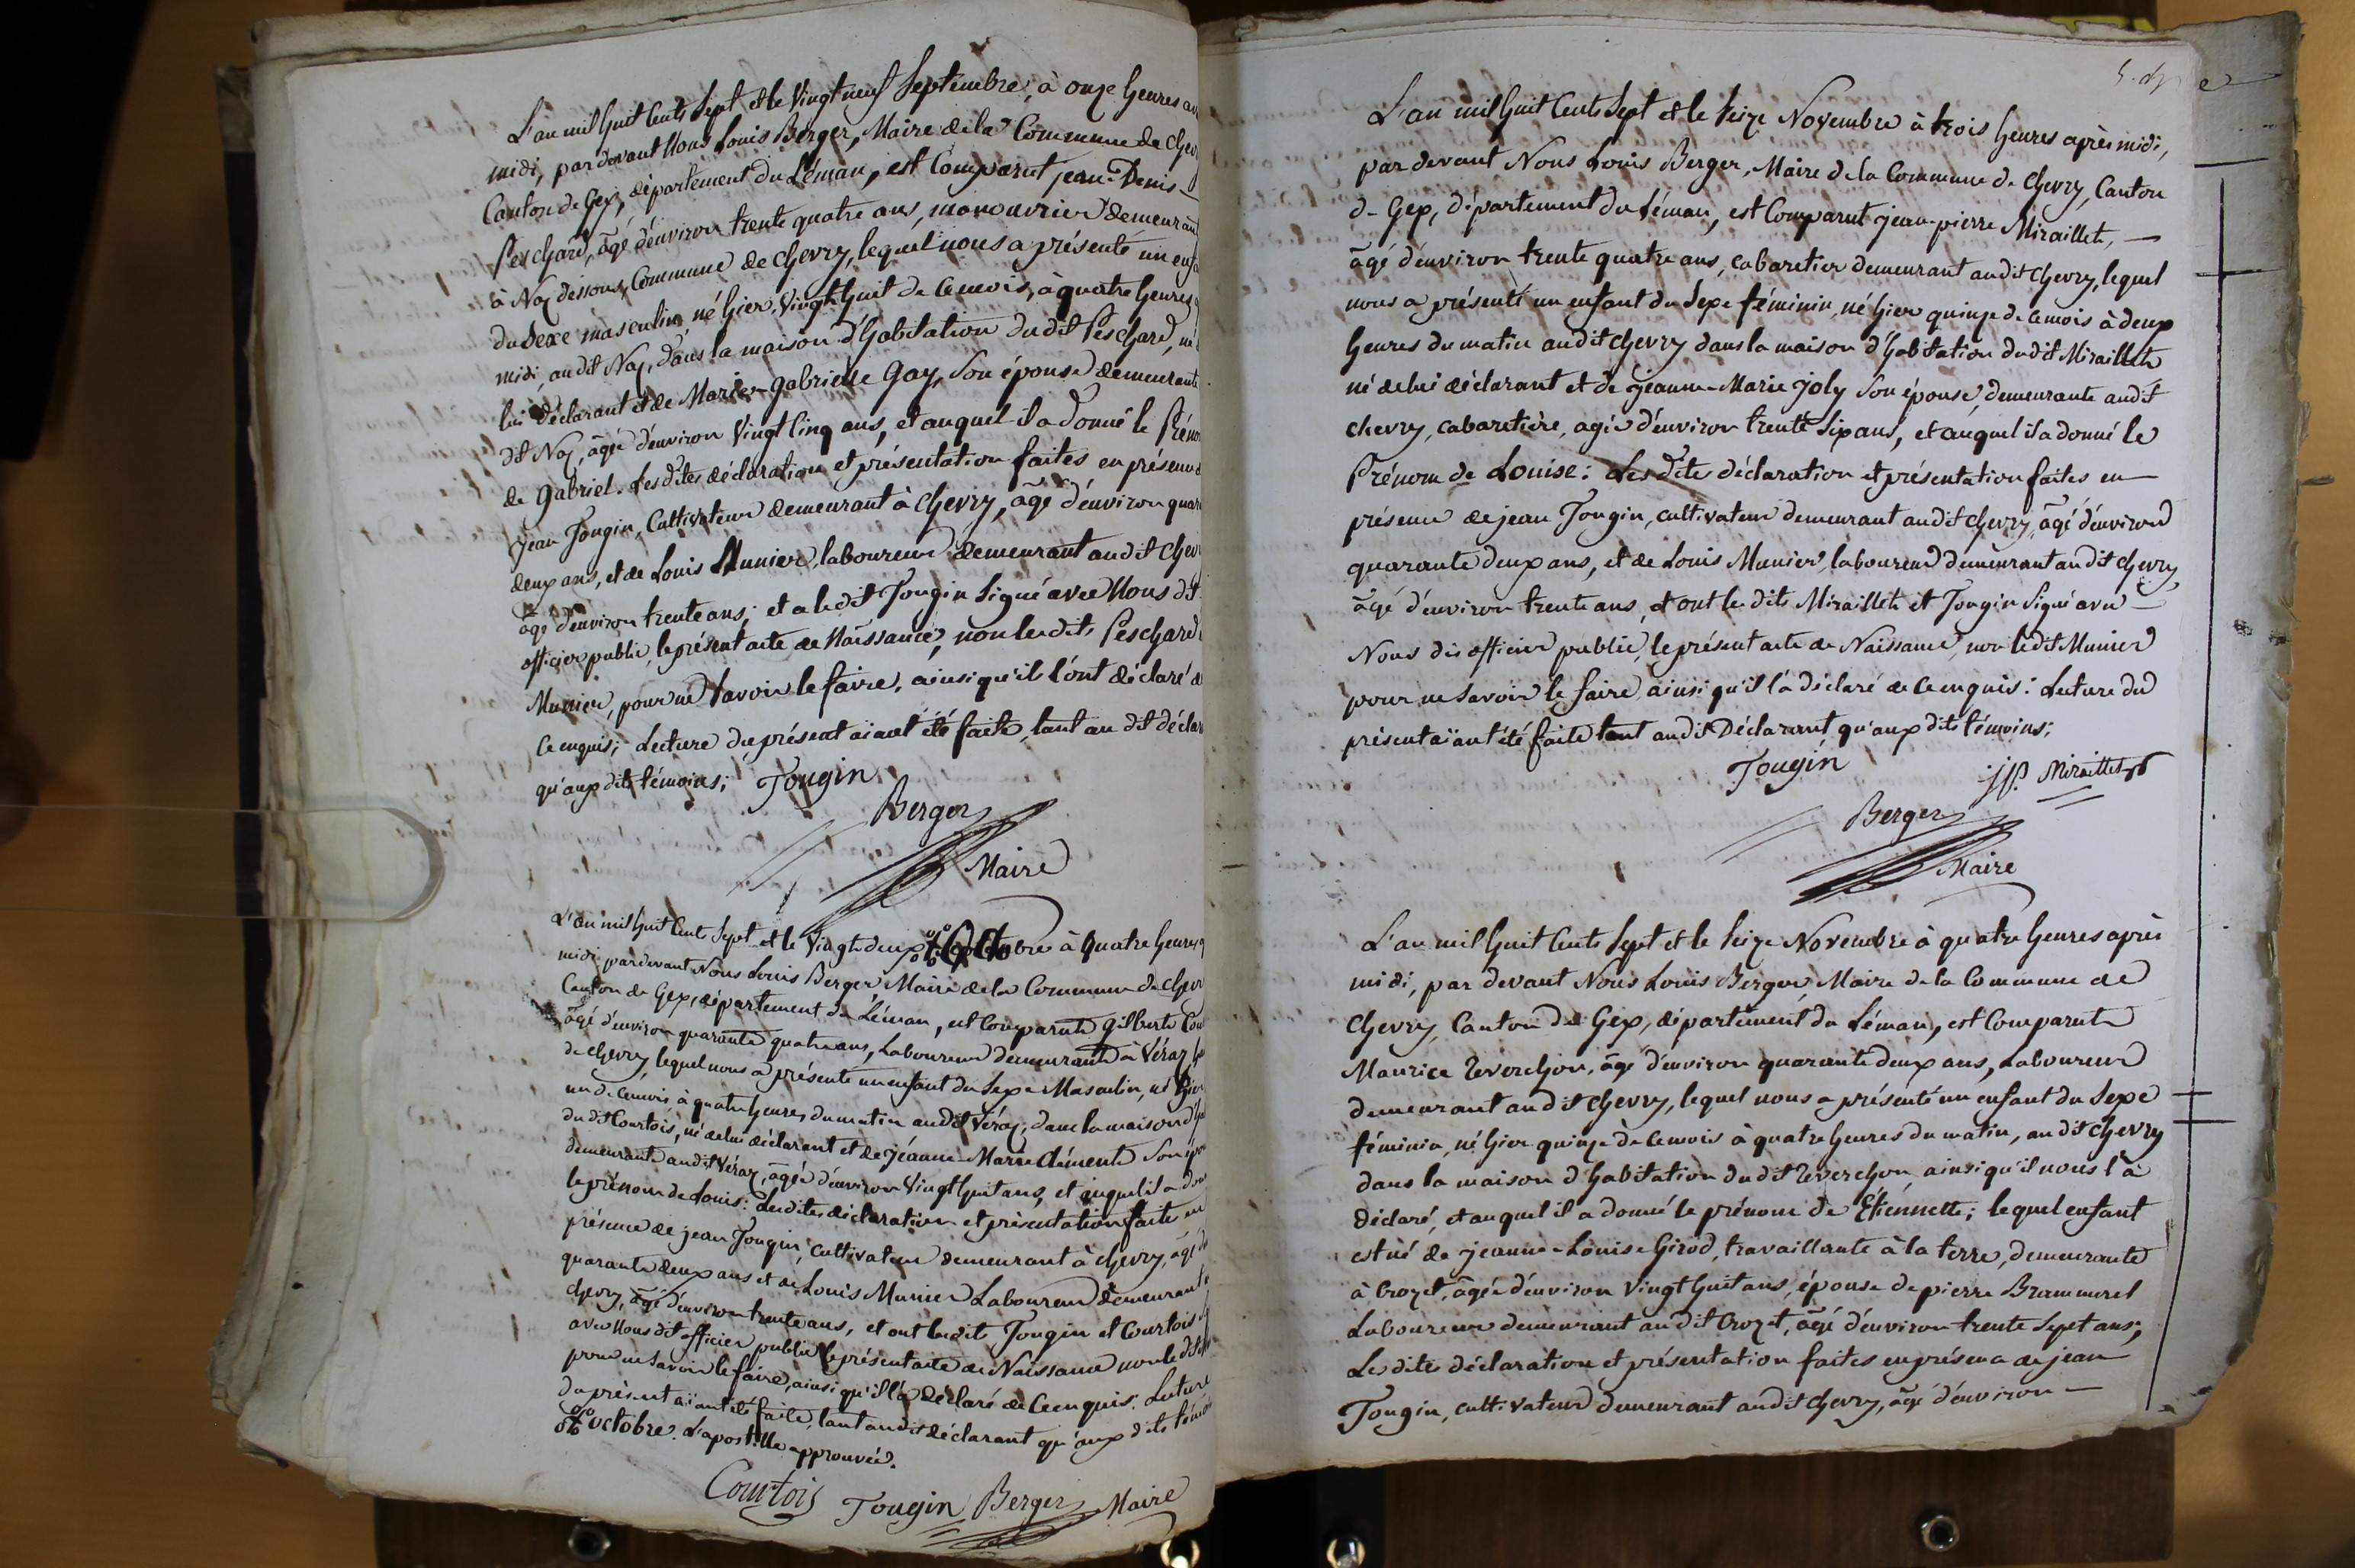 L'an mil huit Cents Sept et le Vingt neuf Septembre, à onze heures av
midi, par devant Nous Louis Berger, Maire de la Commune de Chev
Canton de Gex, département du Léman, est Comparut jean-Denis
Peschard, âgé d'environ trente quatre ans, manouvrier demeurant
à Naz dessous, Commune de chevry, lequel nous a présenté un enfa
du Sexe masculin, né hier, Vingt huit de Ce mois, à quatre heures
midi, au dit Naz, dans la maison d'habitation du dit Peschard, né d
lui déclarant et de Marie-gabrielle Gay, Son épouse demeurante
dit Naz, âgée d'environ Vingt Cinq ans, et auquel il a donné le Préno
de gabriel. Les dites déclaration et présentation faites en présence d
jean Tougin, Cultivateur demeurant à Chevry, âgé d'environ quara
deux ans, et de Louis Munier, laboureur demeurant audit Chev
âgé d'environ trente ans; et a le dit Tougin Signé avec Nous dit
officier public, le présent acte de Naissance, non les dits Peschard
Munier, pour ne Savoir le faire, ainsi qu'ils l'ont déclaré d
Ce enquis; Lecture du présent aïant été faite, tant au dit déclar
qu'aux dits témoins; Tougin
Berger
Maire
L'an mil huit Cents Sept et le Vingt deux Octobre à quatre heures
midi par devant Nous Louis Berger, Maire de la Commune de Chev
Canton de Gex, département du Léman, est Comparut gilbert Cou
âgé d'environ quarante quatre ans, Laboureur demeurant à Véraz
de Chevry, lequel nous a présenté un enfant du Sexe Masculin, né hier
un de Ce mois à quatre heures du matin audit Véraz, dans la maison d'ha
du dit Courtois, né de lui déclarant et de jeanne-Marie Clément Son épou
demeurante audit Véraz, âgée d'environ Vingt huit ans, et auquel il a don
le prénom de Louis: Les dites déclaration et présentation faites en
présence de jean Tougin, cultivateur demeurant à Chevry, âgé d
quarante deux ans et de Louis Munier Laboureur demeurant
Chevry, âgé d'environ trente ans, et ont les dits Tougin et Courtois
avec Nous dit officier public le présent acte de Naissance non le dit
pour ne Savoir le faire, ainsi qu'il l'a déclaré de Ce enquis. Lecture
du présent aïant été faite, tant audit déclarant qu'aux dits témoi
octobre. L'apostille approuvée.
Courtois Tougin Berger Maire
L'an mil huit Cents Sept et le Seize Novembre à trois heures après midi,
par devant Nous Louis Berger, Maire de la Commune de Chevry, Canton
de Gex, département du Léman, est Comparut jean-pierre Miraillet,
âgé d'environ trente quatre ans, cabaretier demeurant audit Chevry, lequel
nous a présenté un enfant du Sexe féminin, né hier quinze de Ce mois à deux
heures du matin audit Chevry dans la maison d'habitation dudit Miraillet
né de lui déclarant et de jeanne-Marie joly Son épouse, demeurante audit
chevry, cabaretière, agée d'environ trente Six ans, et auquel il a donné le
Prénom de Louise: Les dites déclaration et présentation faites en
présence de jean Tougin, cultivateur demeurant audit chevry, âgé d'environ
quarante deux ans, et de Louis Munier, laboureur demeurant audit chevry,
âgé d'environ trente ans, et ont les dits Miraillet et Tougin Signé avec
Nous dis officier public, le présent acte de Naissance, non le dit Munier
pour ne Savoir le faire, ainsi qu'il l'a déclaré de Ce enquis: Lecture du
présent aïant été faite tant audit Déclarant qu'aux dits témoins;
Tougin
jp. Miraillet
Berger
Maire
L'an mil huit Cents Sept et le Seize Novembre à quatre heures après
midi, par devant Nous Louis Berger Maire de la Commune de
Chevry, Canton de Gex, département du Léman, est Comparut
Maurice Reverchon, âgé d'environ quarante deux ans, Laboureur
demeurant audit Chevry, lequel nous a présenté un enfant du Sexe
féminin, né hier quinze de Ce mois à quatre heures du matin, audit Chevry
dans la maison d'habitation dudit Reverchon, ainsi qu'il nous l'à
déclaré, et auquel il a donné le prénom de Etiennette; lequel enfant
est né de jeanne-Louise Girod, travaillante à la terre, demeurante
à Crozet, âgée d'environ Vingt huit ans, épouse de pierre Brammerel
Laboureur demeurant audit Crozet, âgé d'environ trente Sept ans;
Les dites déclaration et présentation faites en présence de jean
Tougin, cultivateur demeurant audit Chevry, âgé d'environ